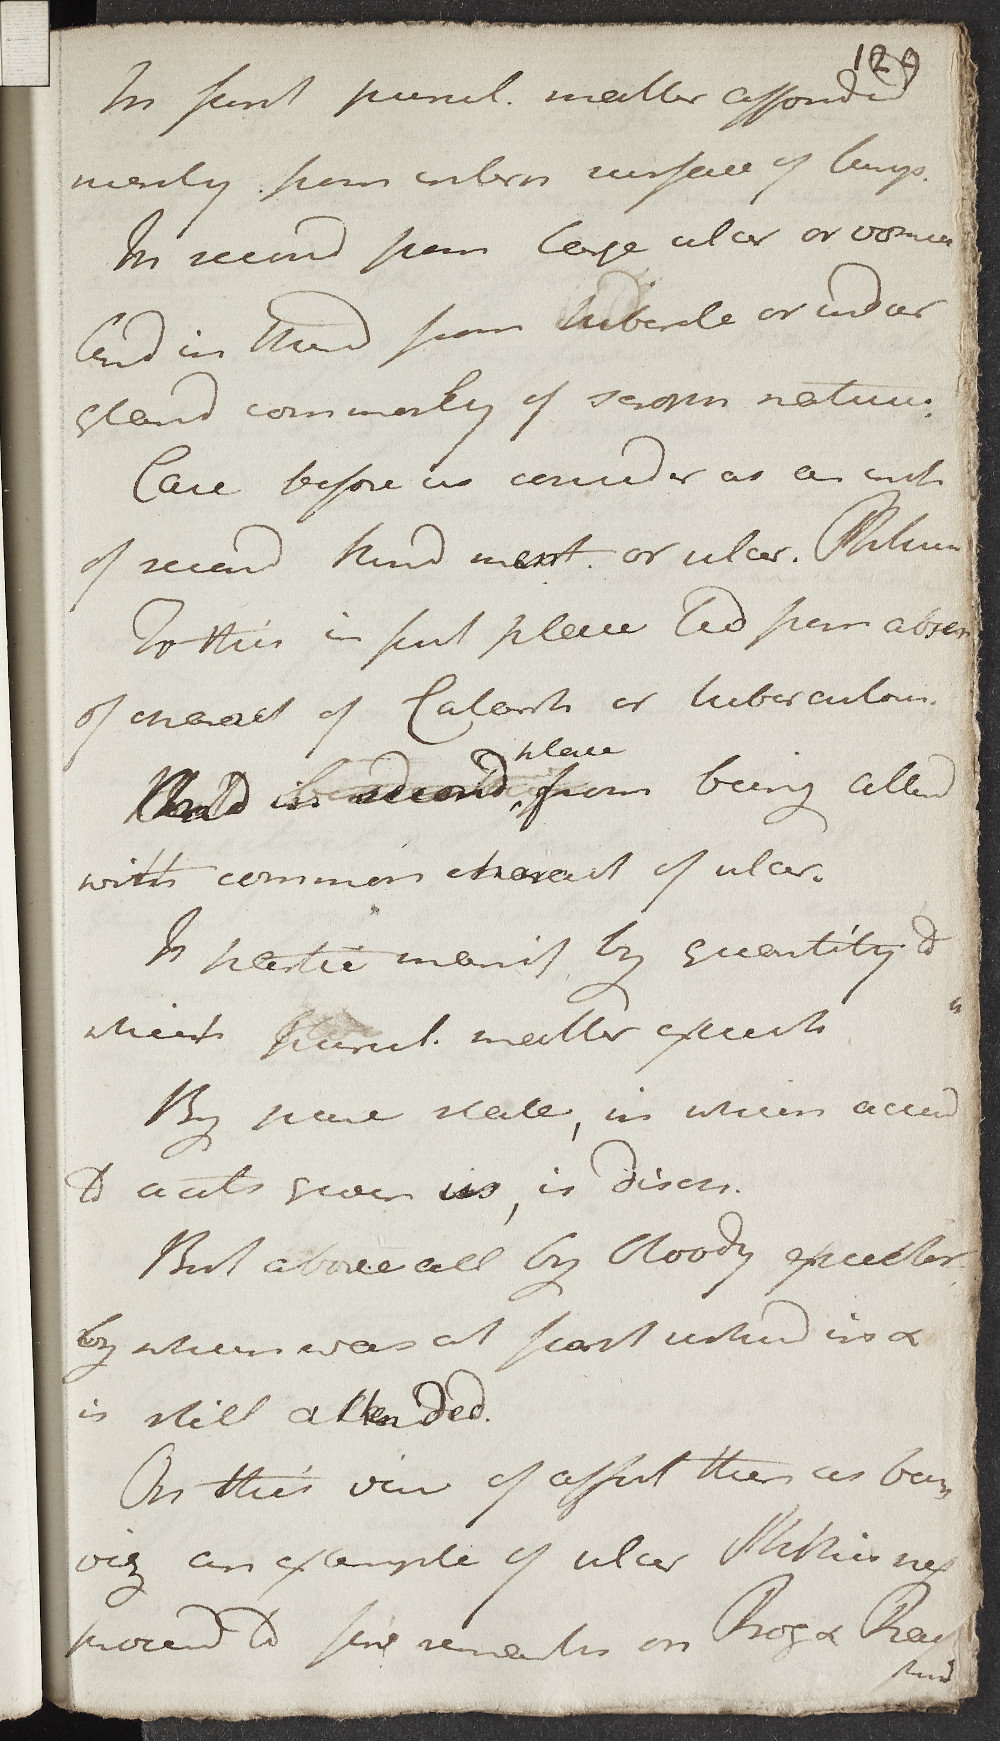 129
In first purul. matter afforded
merely from intern surface of lungs.
In second from large ulcer or vomica
And in third from tubercle or indur
gland commonly of scroph nature.
Case before us consider as an inst
of second kind ment. or ulcer. Phthisis
To this in first place led from absen
of charact of Catarrh or tuberculous.
And in second, place from being attend
with common charact of ulcer.
In partic manif by quantity to
which purul. matter expect
By pure state, in which accord
to acct given us, is disch.
But above all by bloody expector
by which was at first usherd in &
is still attended.
On this view of affect then as being
viz an example of ulcer Phthisis nex
proceed to few remarks on Prog & Prac